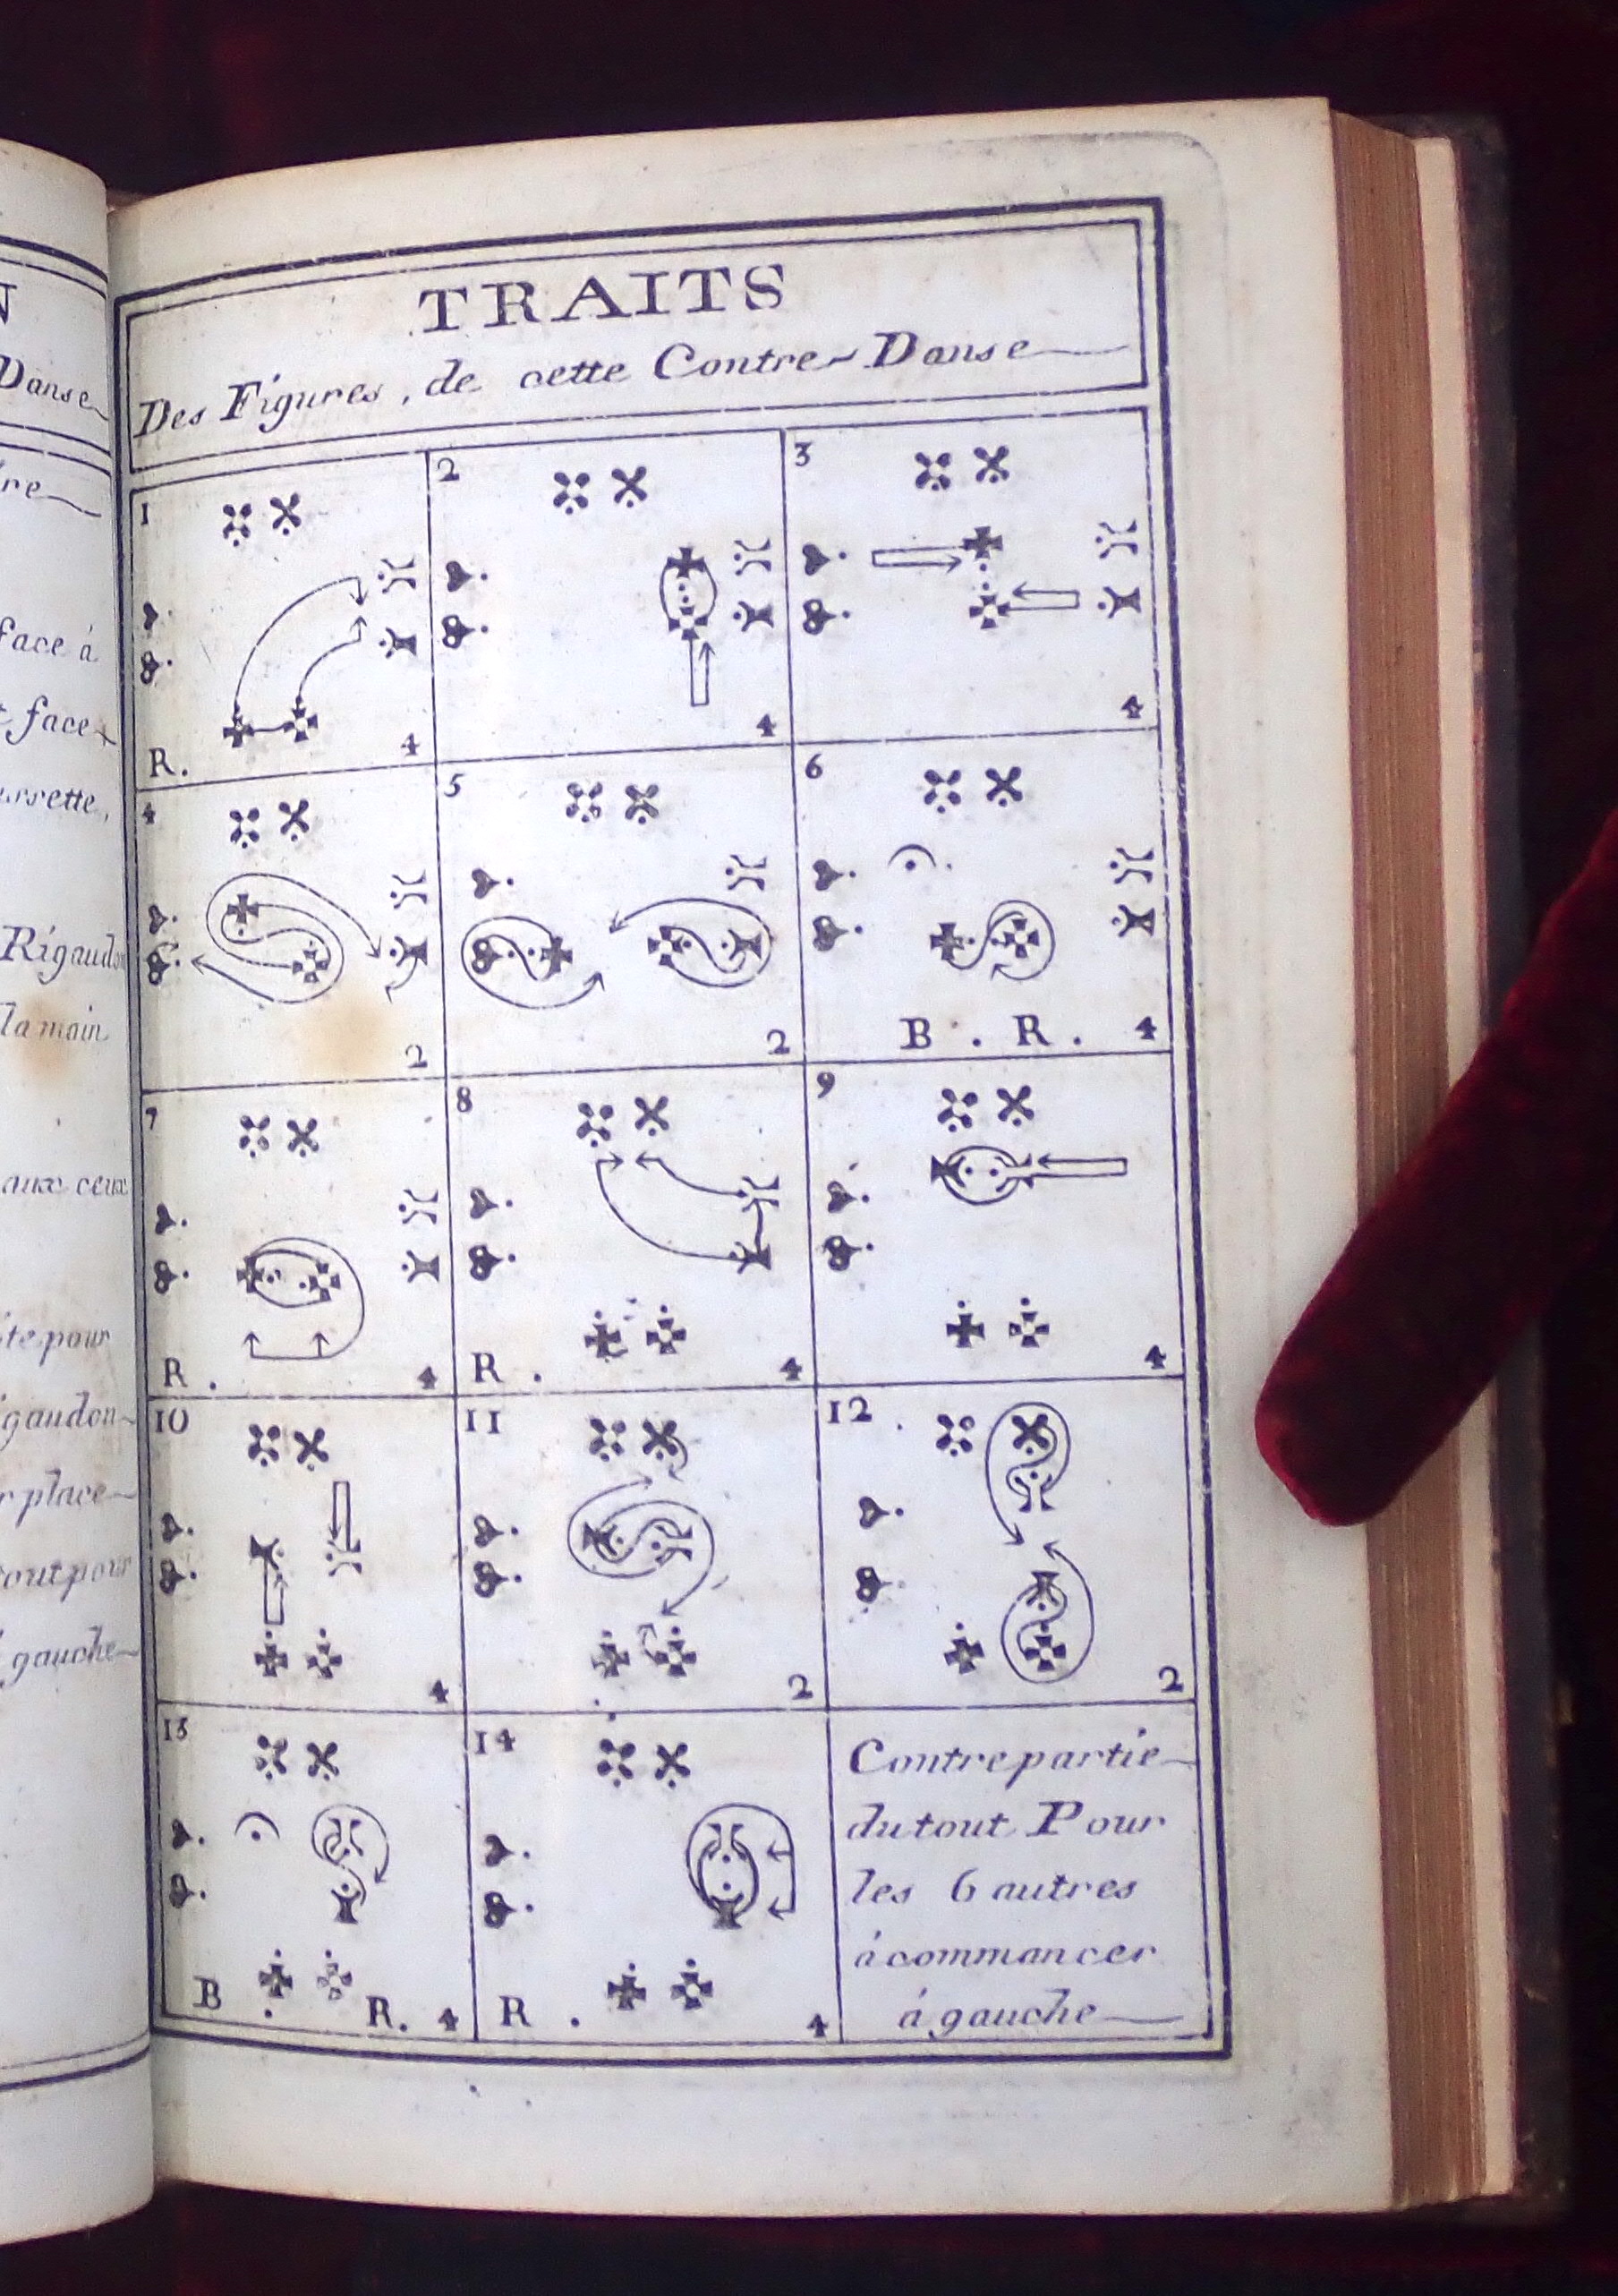 N
Danse
re
face à
t face
ussette,
Rigaudon
la main
aux ceux
ite pour
igaudon
r place
tout pour
à gauche
TRAITS
Des Figures, de cette Contre-Danse
1
R. 4
2
4
3
4
4
2
5
2
6
B . R . 4
7
R . 4
8
R . 4
9
4
10
4
11
2
12 .
2
13
B . R. 4
14
R . 4
Contrepartie
du tout Pour
les 6 autres
à commancer
à gauche